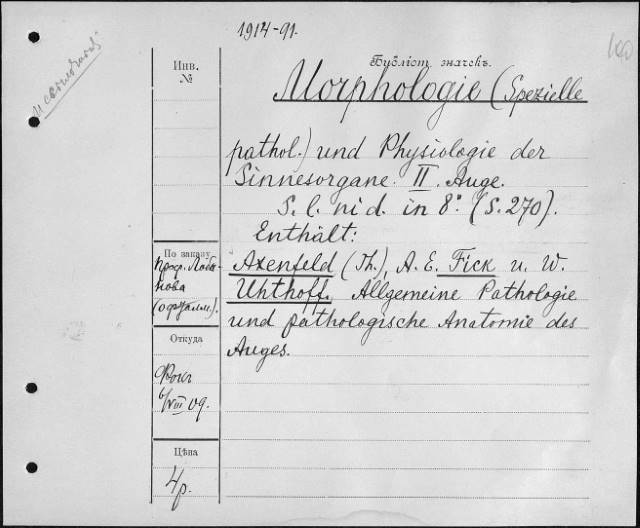 1914-91.
Инв.
№
Бубліот. значекъ.
Morphologie (Spezielle
pathol.) und Physiologie der
Sinnesorgane. II. Auge.
S. l. ni d. in 8°. (S. 270).
Enthält:
По заказу
Проф. Лоба-
нова
(офталм.)
Axenfeld (Th.), A. E. Fick u. W.
Uhthoff. Allgemeine Pathologie
und pathologische Anatomie des
Auges.
Откуда
Фокъ
6/VIII 09.
Цѣна
4р.